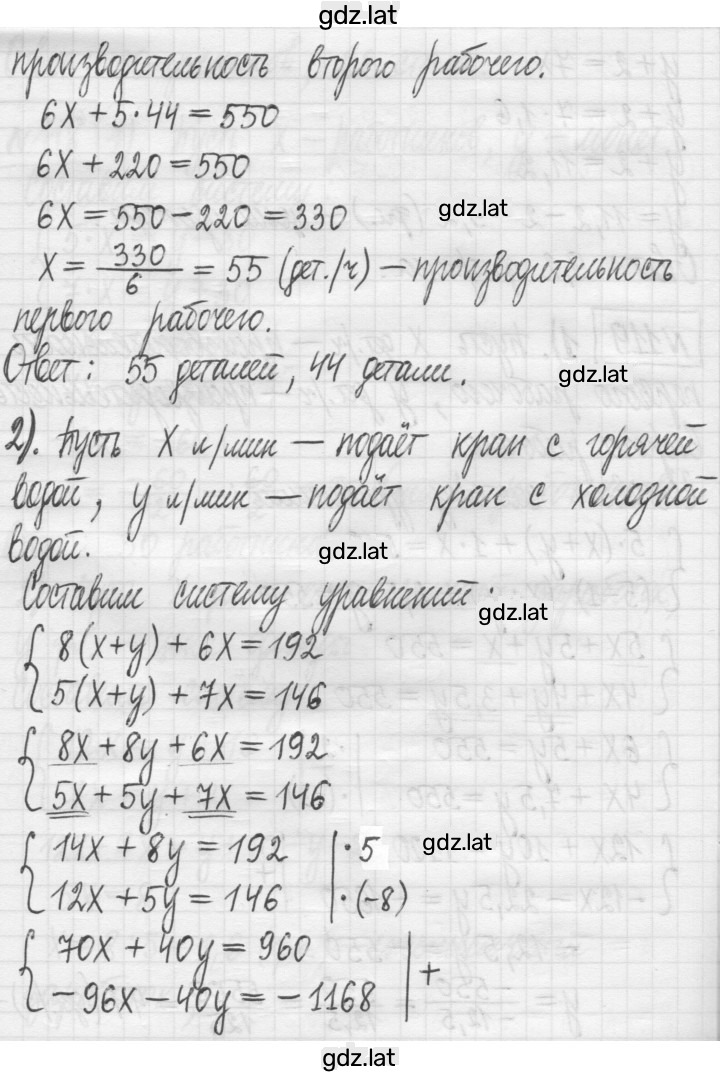 gdz.lat
производительность второго рабочего.
6x + 5·44 = 550
6x + 220 = 550
6x = 550 - 220 = 330
gdz.lat
x = 330/6 = 55 (дет./ч) — производительность
первого рабочего.
Ответ: 55 деталей, 44 детали.
gdz.lat
2). Пусть x л/мин — подаёт кран с горячей
водой, y л/мин — подаёт кран с холодной
водой.
gdz.lat
Составим систему уравнений:
gdz.lat
{ 8(x+y) + 6x = 192
5(x+y) + 7x = 146
{ 8x + 8y + 6x = 192
5x + 5y + 7x = 146
{ 14x + 8y = 192 | ·5
gdz.lat
12x + 5y = 146 | ·(-8)
{ 70x + 40y = 960
-96x - 40y = -1168 | +
gdz.lat